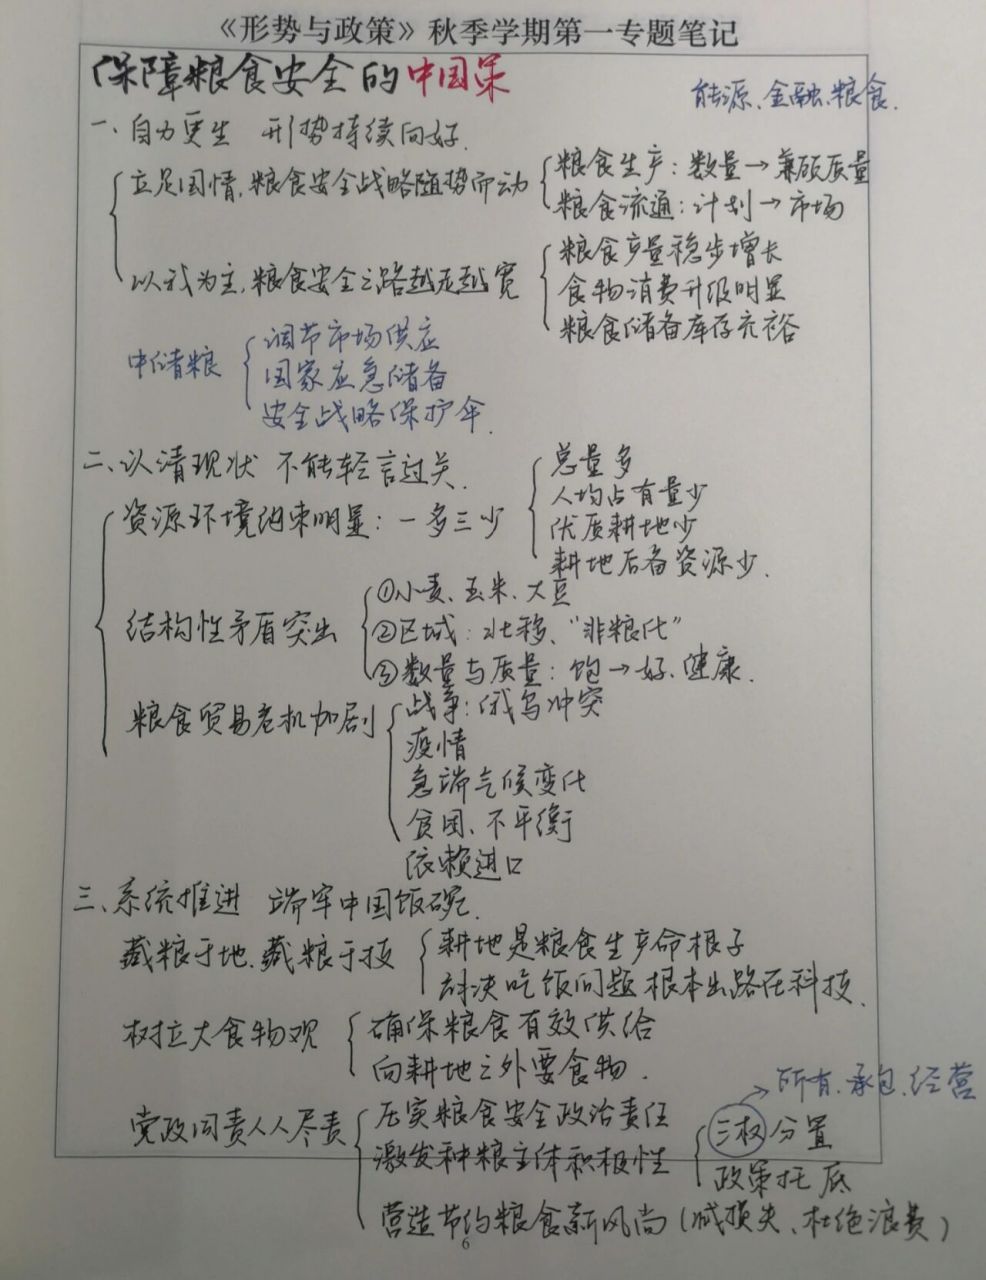 《形势与政策》秋季学期第一专题笔记
保障粮食安全的中国策
能源、金融、粮食.
一、自力更生 形势持续向好.
立足国情,粮食安全战略随势而动
粮食生产：数量→兼顾质量
粮食流通：计划→市场
以我为主,粮食安全之路越走越宽
粮食产量稳步增长
食物消费升级明显
粮食储备库存充裕
中储粮
调节市场供应
国家应急储备
安全战略保护伞.
二、认清现状 不能轻言过关.
资源环境约束明显：一多三少
总量多
人均占有量少
优质耕地少
耕地后备资源少.
结构性矛盾突出
①小麦、玉米、大豆
②区域：北移、"非粮化"
③数量与质量：饱→好、健康.
粮食贸易危机加剧
战争：俄乌冲突
疫情
急端气候变化
贫困、不平衡
依赖进口
三、系统推进 端牢中国饭碗.
藏粮于地、藏粮于技
耕地是粮食生产命根子
解决吃饭问题根本出路在科技.
树立大食物观
确保粮食有效供给
向耕地之外要食物.
党政同责人人尽责
压实粮食安全政治责任
激发种粮主体积极性
三权分置
→所有、承包、经营
政策托底
营造节约粮食新风尚(减损失、杜绝浪费)
6